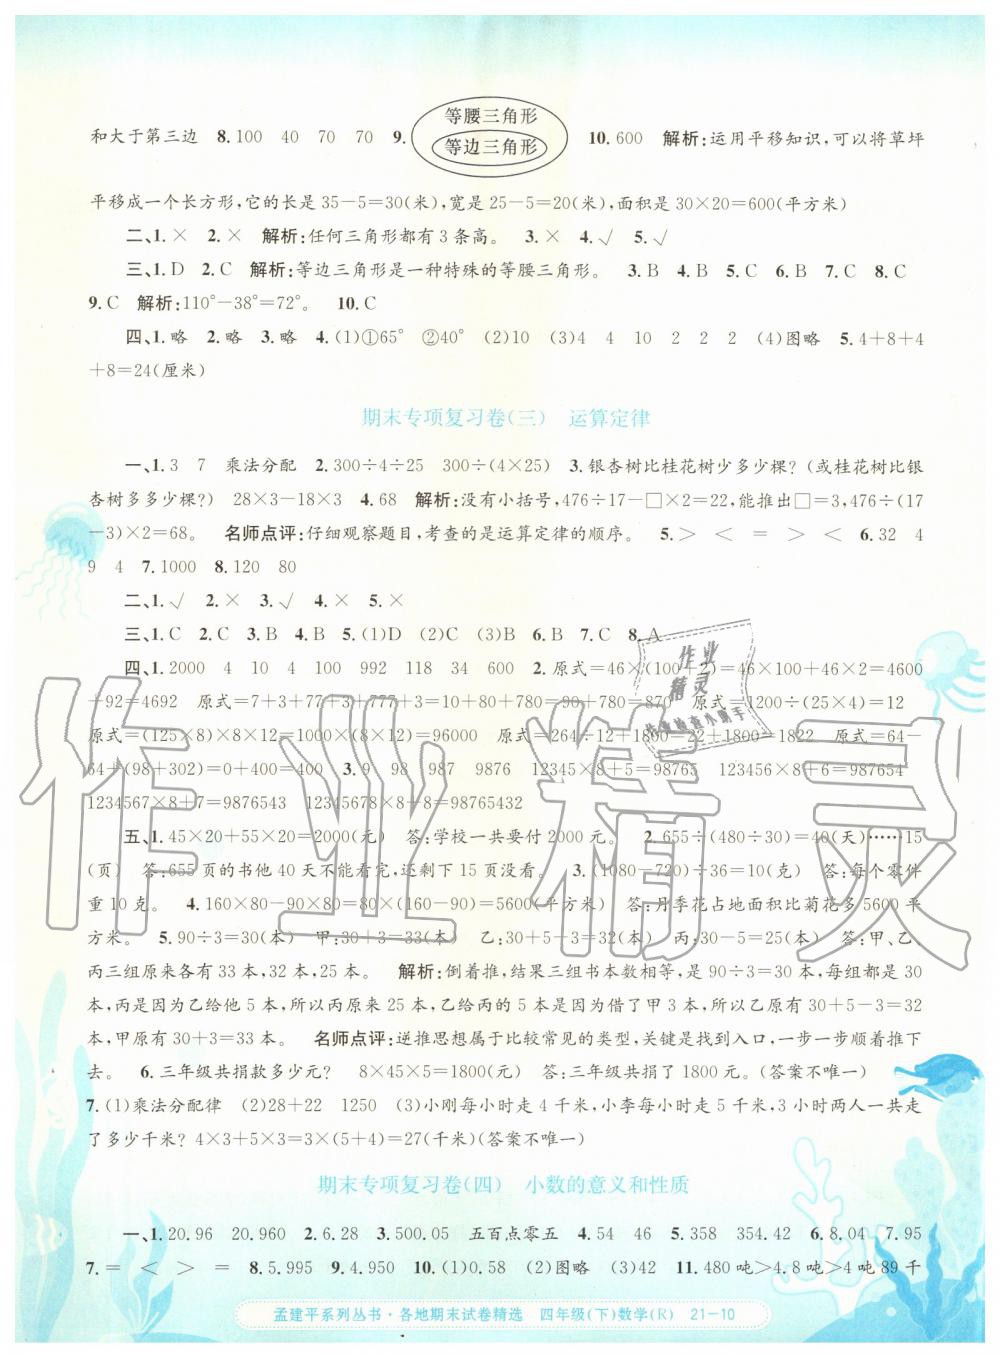 等腰三角形
和大于第三边 8.100 40 70 70 9. 等边三角形 10.600 解析:运用平移知识,可以将草坪
平移成一个长方形,它的长是 35-5=30(米),宽是 25-5=20(米),面积是 30×20=600(平方米)
二、1.× 2.× 解析:任何三角形都有 3 条高。 3.× 4.√ 5.√
三、1.D 2.C 解析:等边三角形是一种特殊的等腰三角形。 3.B 4.B 5.C 6.B 7.C 8.C
9.C 解析:110°-38°=72°。 10.C
四、1.略 2.略 3.略 4.(1)①65° ②40° (2)10 (3)4 4 10 2 2 2 (4)图略 5.4+8+4
+8=24(厘米)
期末专项复习卷(三) 运算定律
一、1.3 7 乘法分配 2.300÷4÷25 300÷(4×25) 3.银杏树比桂花树少多少棵?(或桂花树比银
杏树多多少棵?) 28×3-18×3 4.68 解析:没有小括号,476÷17-□×2=22,能推出□=3,476÷(17
-3)×2=68。 名师点评:仔细观察题目,考查的是运算定律的顺序。 5.> < = > < 6.32 4
9 4 7.1000 8.120 80
二、1.√ 2.× 3.√ 4.× 5.×
三、1.C 2.C 3.B 4.B 5.(1)D (2)C (3)C 6.B 7.C 8.A
四、1.2000 4 10 4 100 992 118 34 600 2.原式=46×(100+2)=46×100+46×2=4600
+92=4692 原式=7+3+77+3+777+3=10+80+780=870 原式=1200÷(25×4)=12
原式=(125×8)×8×12=1000×(8×12)=96000 原式=264÷12+1800=22+1800=1822 原式=64-
64+(98+302)=0+400=400 3.9 98 987 9876 12345×8+5=98765 123456×8+6=987654
1234567×8+7=9876543 12345678×8+8=98765432
五、1.45×20+55×20=2000(元) 答:学校一共要付 2000 元。 2.655÷(480÷30)=40(天)……15
(页) 答:655 页的书他 40 天不能看完,还剩下 15 页没看。 3.(1080-720)÷36=10(克) 答:每个零件
重 10 克。 4.160×80-90×80=80×(160-90)=5600(平方米) 答:月季花占地面积比菊花多 5600 平
方米。 5.90÷3=30(本) 甲:30+3=33(本) 乙:30+5-3=32(本) 丙:30-5=25(本) 答:甲、乙、
丙三组原来各有 33 本,32 本,25 本。 解析:倒着推,结果三组书本数相等,是 90÷3=30(本),每组都是 30
本,丙是因为乙给他 5 本,所以丙原来 25 本,乙给丙的 5 本是因为借了甲 3 本,所以乙原有 30+5-3=32
本,甲原有 30+3=33(本)。 名师点评:逆推思想属于比较常见的类型,关键是找到出入口,一步一步顺着推下
去。 6.三年级共捐款多少元? 8×45×5=1800(元) 答:三年级共捐了 1800 元。(答案不唯一)
7.(1)乘法分配律 (2)28+22 1250 (3)小刚每小时走 4 千米,小李每小时走 5 千米,3 小时两人一共走
了多少千米?4×3+5×3=3×(5+4)=27(千米)(答案不唯一)
期末专项复习卷(四) 小数的意义和性质
一、1.20.96 20.960 2.6.28 3.500.05 五百点零五 4.54 46 5.358 354.42 6.8.04 7.95
7.= < > = 8.5.995 9.4.950 10.(1)0.58 (2)图略 (3)42 11.480 吨>4.8 吨>4 吨 89 千
孟建平系列丛书·各地期末试卷精选 四年级(下)数学(R) 21-10
作业精灵
作业
精灵